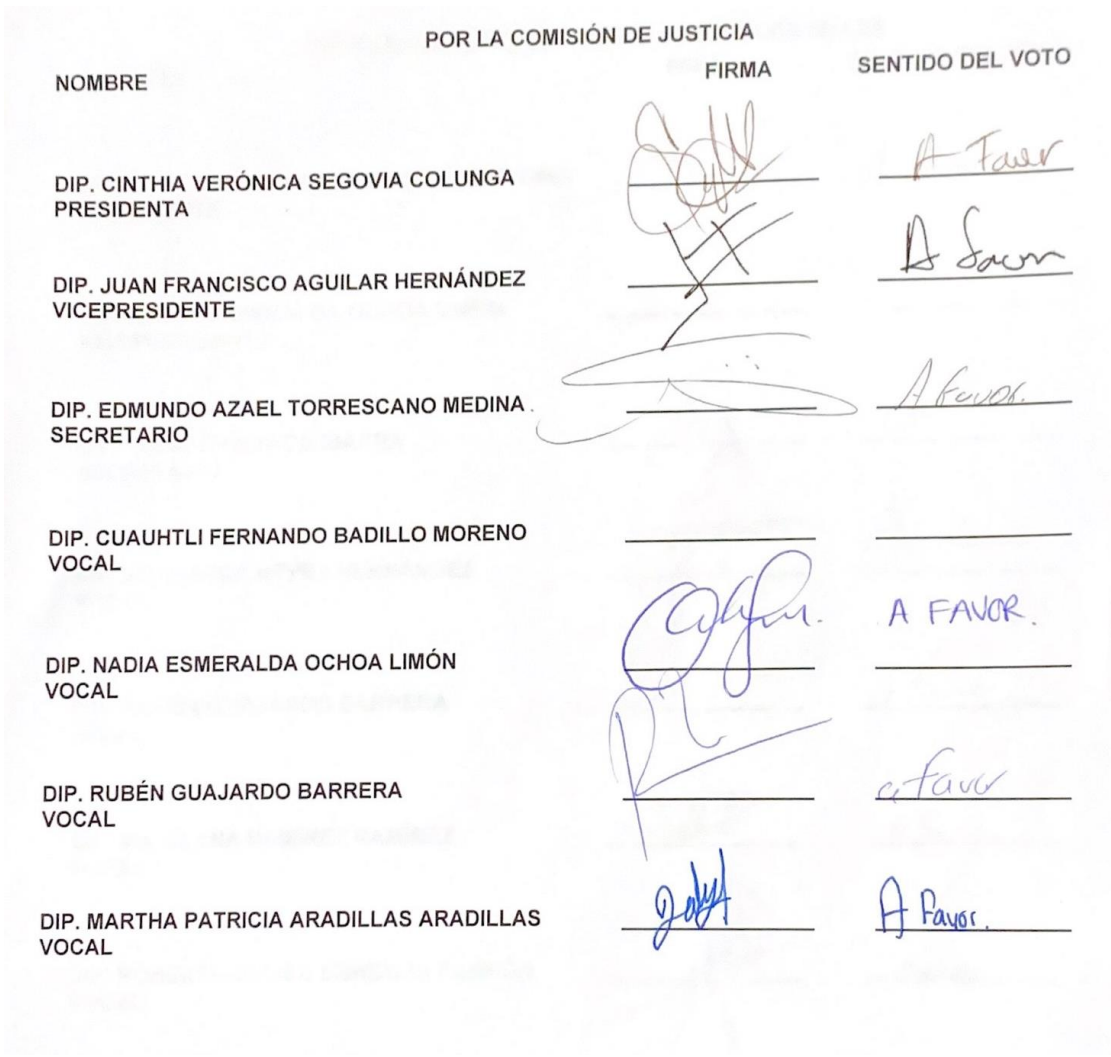 POR LA COMISIÓN DE JUSTICIA
NOMBRE FIRMA SENTIDO DEL VOTO
DIP. CINTHIA VERÓNICA SEGOVIA COLUNGA A Favor
PRESIDENTA
DIP. JUAN FRANCISCO AGUILAR HERNÁNDEZ A favor
VICEPRESIDENTE
DIP. EDMUNDO AZAEL TORRESCANO MEDINA A favor.
SECRETARIO
DIP. CUAUHTLI FERNANDO BADILLO MORENO
VOCAL
DIP. NADIA ESMERALDA OCHOA LIMÓN A FAVOR.
VOCAL
DIP. RUBÉN GUAJARDO BARRERA a favor
VOCAL
DIP. MARTHA PATRICIA ARADILLAS ARADILLAS A Favor.
VOCAL